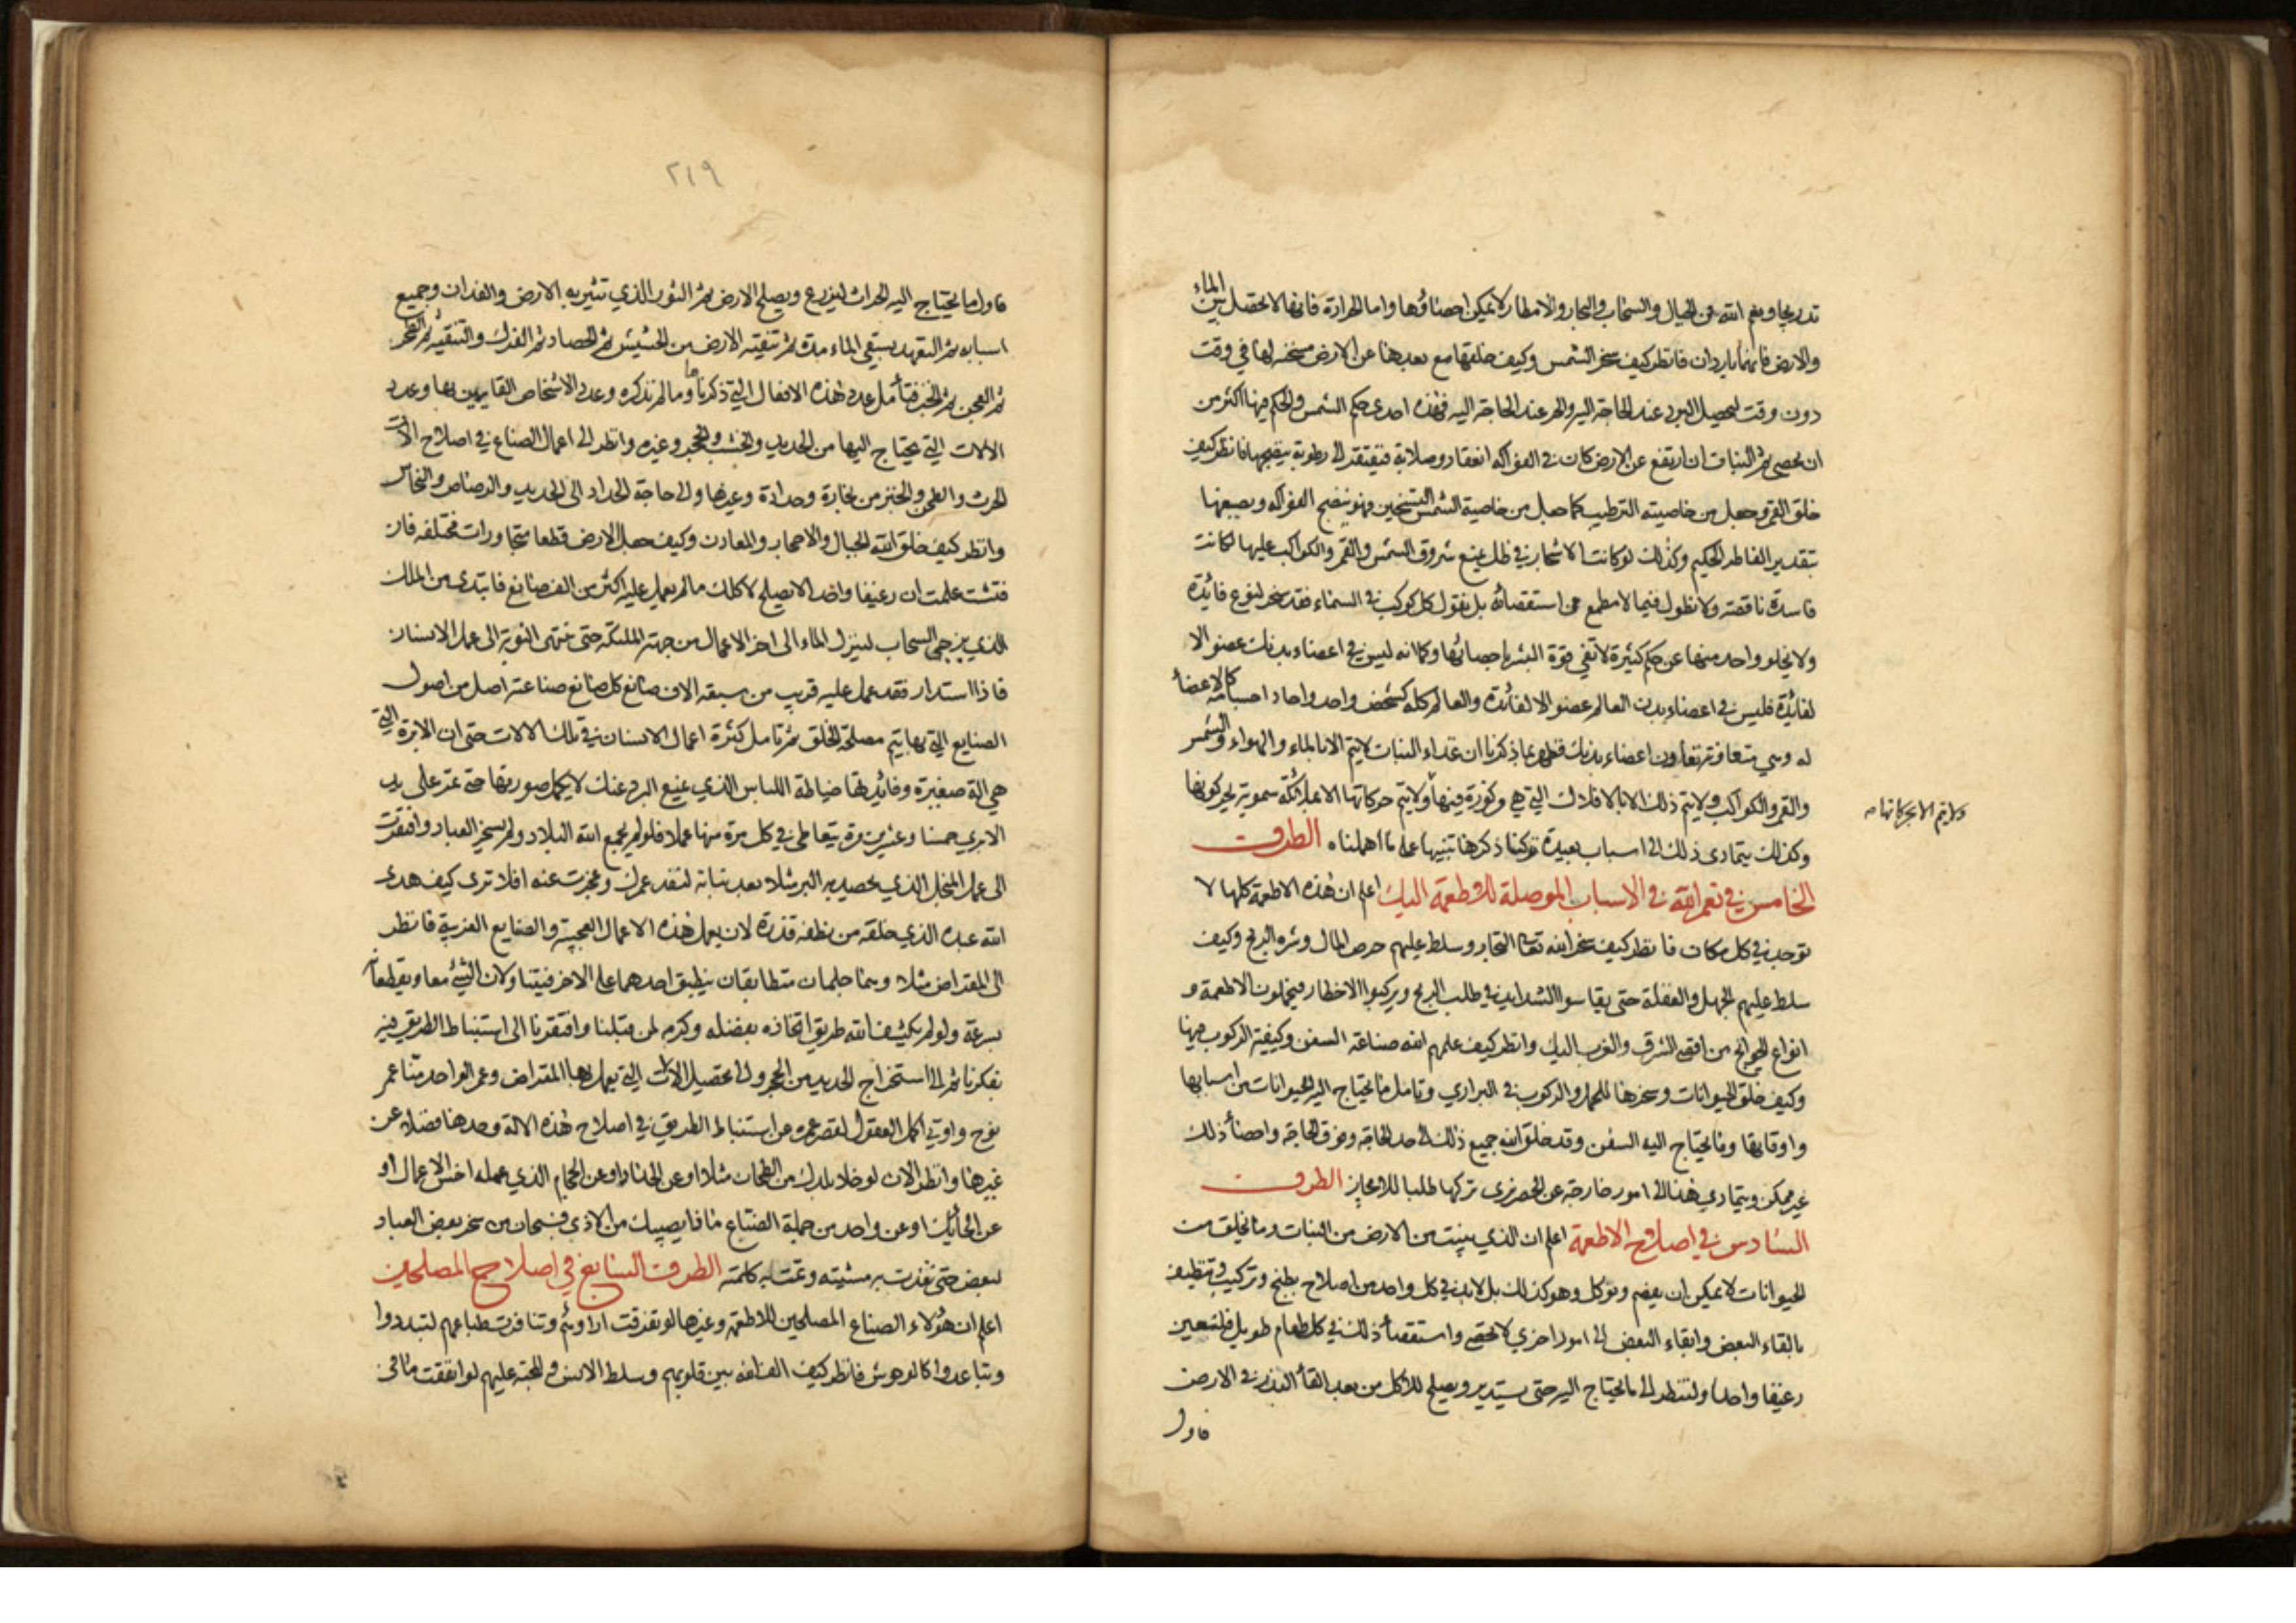 تدريجا ونعم الله في الجبال والسحاب والبحار والامطار لا يمكن احصاؤها واما الحرارة فانها لا تحصل بين الماء
والارض فانهما باردان فانظر كيف سخر الشمس وكيف خلقها مع بعدها عن الارض مسخنه لها في وقت
دون وقت ليحصل البرد عند الحاجة اليه والحر عند الحاجة اليه فهذه احدى حكم الشمس والحكم فيها اكثر من
ان تحصى ثم النبات ان ارتفع عن الارض كان في الفواكه انعقاد وصلابة فتفتقر الى رطوبة ينضجها فانظر كيف
خلق القمر وجعل من خاصيته الترطيب كما جعل من خاصية الشمس التسخين فهو ينضج الفواكه ويصبغها
بتقدير الفاطر الحكيم وكذلك لو كانت الاشجار في ظل يمنع شروق الشمس والقمر والكواكب عليها لكانت
فاسدة ناقصة ولا نطول فيما لا مطمع في استقصائه بل نقول كل كوكب في السماء فقد سخر لنوع فائدة
ولا يخلو واحد منها عن حكم كثيرة لا تفي قوة البشر باحصائها وكما انه ليس في اعضاء بدنك عضو الا
لفائدة فليس في اعضاء بدن العالم عضو الا لفائدة والعالم كله كشخص واحد واحاد اجسامه كالاعضاء
له وهي متعاونة تعاون اعضاء بدنك فظهر بما ذكرنا ان غذاء النبات لا يتم الا بالماء والهواء والشمس
والقمر والكواكب ولا يتم ذلك الا بالافلاك التي هي مركوزة فيها ولا يتم حركاتها الا بملائكة سموية يحركونها
ولا يتم الا بحركاتها صح
وكذلك يتمادى ذلك الى اسباب بعيدة تركنا ذكرها تنبيها على ما اهملناه الطرف
الخامس في نعم الله في الاسباب الموصلة للاطعمة اليك اعلم ان هذه الاطعمة كلها لا
توجد في كل مكان فانظر كيف سخر الله تعالى التجار وسلط عليهم حرص المال وشره الربح وكيف
سلط عليهم الجهل والغفلة حتى يقاسوا الشدايد في طلب الربح ويركبوا الاخطار فيحملون الاطعمة و
انواع الحوائج من اقصى الشرق والغرب اليك وانظر كيف علمهم الله صناعة السفن وكيفية الركوب فيها
وكيف خلق الحيوانات وسخرها للحمل والركوب في البراري وتامل ما يحتاج اليه الحيوانات من اسبابها
واوقاتها وما يحتاج اليه السفن وقد خلق الله جميع ذلك الى حد الحاجة وفوق الحاجة واحصاء ذلك
غير ممكن ويتمادي هذا الى امور خارجة عن الحصر نرى تركها طلبا للايجاز الطرف
السادس في اصلاح الاطعمة اعلم ان الذي ينبت من الارض من النبات وما يخلق من
الحيوانات لا يمكن ان يقضم ويؤكل وهو كذلك بل لا بد في كل واحد من اصلاح بطبخ وتركيب وتنظيف
بالقاء البعض وابقاء البعض الى امور اخري لا تحصى واستقصاء ذلك في كل طعام طويل فلنعين
رغيفا واحدا ولننظر الى ما يحتاج اليه حتى يستدير ويصلح للاكل من بعد القاء البذر في الارض
فاول
٢١٩
فاول ما يحتاج اليه الحراث ليزرع ويصلح الارض ثم الثور الذي تثير به الارض والفدان وجميع
اسبابه ثم التعهد بسقي الماء مدة ثم تنقية الارض من الحشيش ثم الحصاد ثم الفرك والتنقية ثم الطحن
ثم العجن ثم الخبز فتأمل عدد هذه الافعال التي ذكرناها وما لم نذكره وعدد الاشخاص القايمين بها وعدد
الالات التي يحتاج اليها من الحديد والخشب والحجر وغيره وانظر الى اعمال الصناع في اصلاح الات
الحرث والطحن والخبز من نجارة وحدادة وغيرها والى حاجة الحداد الى الحديد والرصاص والنحاس
وانظر كيف خلق الله الجبال والاحجار والمعادن وكيف جعل الارض قطعا متجاورات مختلفه فان
فتشت علمت ان رغيفا واحدا لا يصلح لاكلك ما لم يعمل عليه اكثر من الف صانع فابتدى من الملك
الذي يزجي السحاب لينزل الماء الى اخر الاعمال من جهة الملئكة حتى تنتهى النوبة الى عمل الانسان
فاذا استدار فقد عمل عليه قريب من سبعة الاف صانع كل صانع صناعته اصل من اصول
الصنايع التي بها يتم مصلحة الخلق ثم تامل كثرة اعمال الانسان في تلك الالات حتى ان الابرة التي
هي الة صغيرة وفائدتها خياطة اللباس الذي يمنع البرد عنك لا يكمل صورتها حتى تمر على يد
الابري خمسا وعشرين مرة يتعاطى في كل مرة منها عملا فلو لم يجمع الله البلاد ولم يسخر العباد وافتقرت
الى عمل المنجل الذي يحصد به البر مثلا بعد نباته لنفد عمرك وعجزت عنه افلا ترى كيف هدى
الله عبده الذي خلقه من نطفة قذرة لان يعمل هذه الاعمال العجيبة والصنايع الغريبة فانظر
الى المقراض مثلا وهما جلمان متطابقان ينطبق احدهما على الاخر فيتناولان الشيء معا ويقطعانه
بسرعة ولو لم يكشف الله طريق اتخاذه بفضله وكرمه لمن قبلنا وافتقرنا الى استنباط الطريق فيه
بفكرنا ثم الى استخراج الحديد من الحجر والى تحصيل الالات التي يعمل بها المقراض وعمر الواحد منا عمر
نوح واوتي اكمل العقول لقصر عمره عن استنباط الطريق في اصلاح هذه الالة وحدها فضلا عن
غيرها وانظر الان لو خلا بلدك من الطحان مثلا او عن الحداد او عن الحجام الذي عمله اخس الاعمال او
عن الحائك او عن واحد من جملة الصناع ماذا يصيبك من الاذى فسبحان من سخر بعض العباد
لبعض حتى نفذت به مشيته وتمت به كلمته الطرف السابع في اصلاح المصلحين
اعلم ان هؤلاء الصناع المصلحين للاطعمة وغيرها لو تفرقت اراؤهم وتنافرت طباعهم لتبددوا
وتباعدوا كالوحوش فانظر كيف الف الله بين قلوبهم وسلط الانس والمحبة عليهم لو انفقت ما في